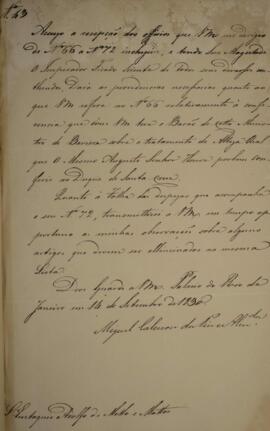 Nº 49
Accuso a recepção dos officios que VM me dirigio
de Nº 66 a Nº 72 inclusive, e tendo Sua Magestade
O Imperador Ficado Sciente de todos seus
dará as providencias necessarias quanto ao
que VM refere no Nº 66 relativamente á confe-
rencia que com VM teve o Barão de Minis-
tro de Baviera sobre o tratamento de Alteza Real
que O Mesmo Augusto Senhor Houve por bem con-
ferir ao Duque de Santa Cruz.
Quanto á folha das despezas que acompanha
o seu Nº 72, transmittirei a VM em tempo op-
portuno as minhas observações sobre alguns
artigos que devem ser eliminados na mesma
Deos Guarde a VM. Palacio do Rio de
Janeiro em 14 de Setembro de 1830
Miguel Calmon du Pin e Almda
Sr Eustaquio Adolfo de Mello e Mattos